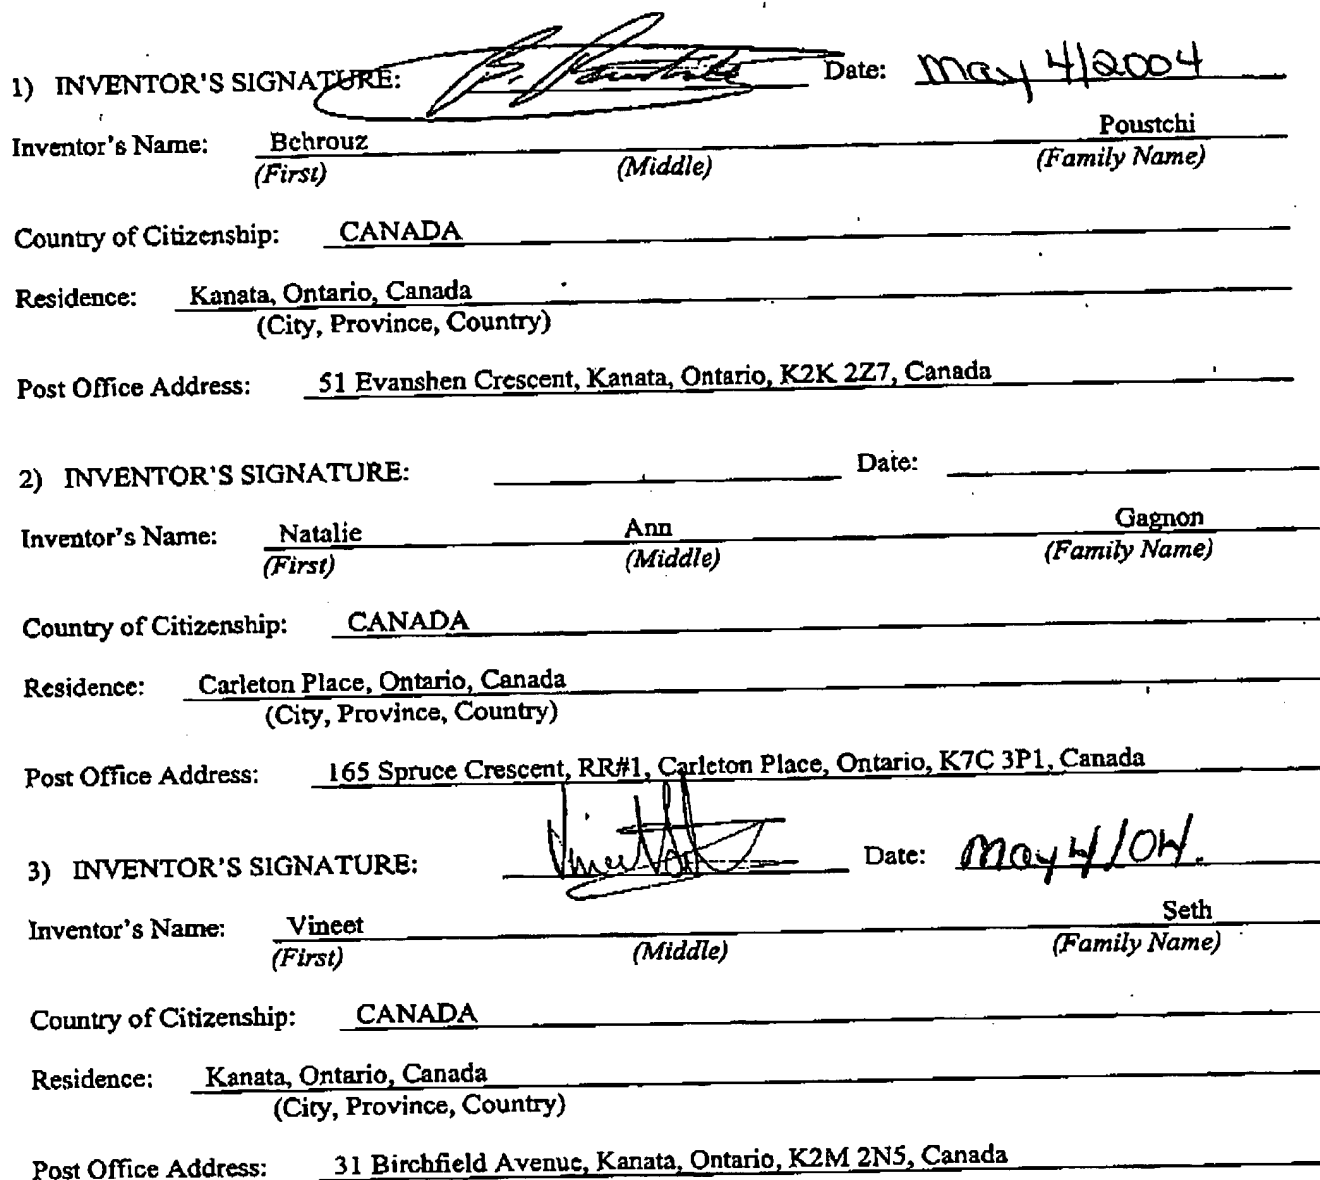 1) INVENTOR'S SIGNATURE: Date: May 4/2004
Inventor's Name: Behrouz Poustchi
(First) (Middle) (Family Name)
Country of Citizenship: CANADA
Residence: Kanata, Ontario, Canada
(City, Province, Country)
Post Office Address: 51 Evanshen Crescent, Kanata, Ontario, K2K 2Z7, Canada
2) INVENTOR'S SIGNATURE: Date:
Inventor's Name: Natalie Ann Gagnon
(First) (Middle) (Family Name)
Country of Citizenship: CANADA
Residence: Carleton Place, Ontario, Canada
(City, Province, Country)
Post Office Address: 165 Spruce Crescent, RR#1, Carleton Place, Ontario, K7C 3P1, Canada
3) INVENTOR'S SIGNATURE: Date: May 4/04.
Inventor's Name: Vineet Seth
(First) (Middle) (Family Name)
Country of Citizenship: CANADA
Residence: Kanata, Ontario, Canada
(City, Province, Country)
Post Office Address: 31 Birchfield Avenue, Kanata, Ontario, K2M 2N5, Canada